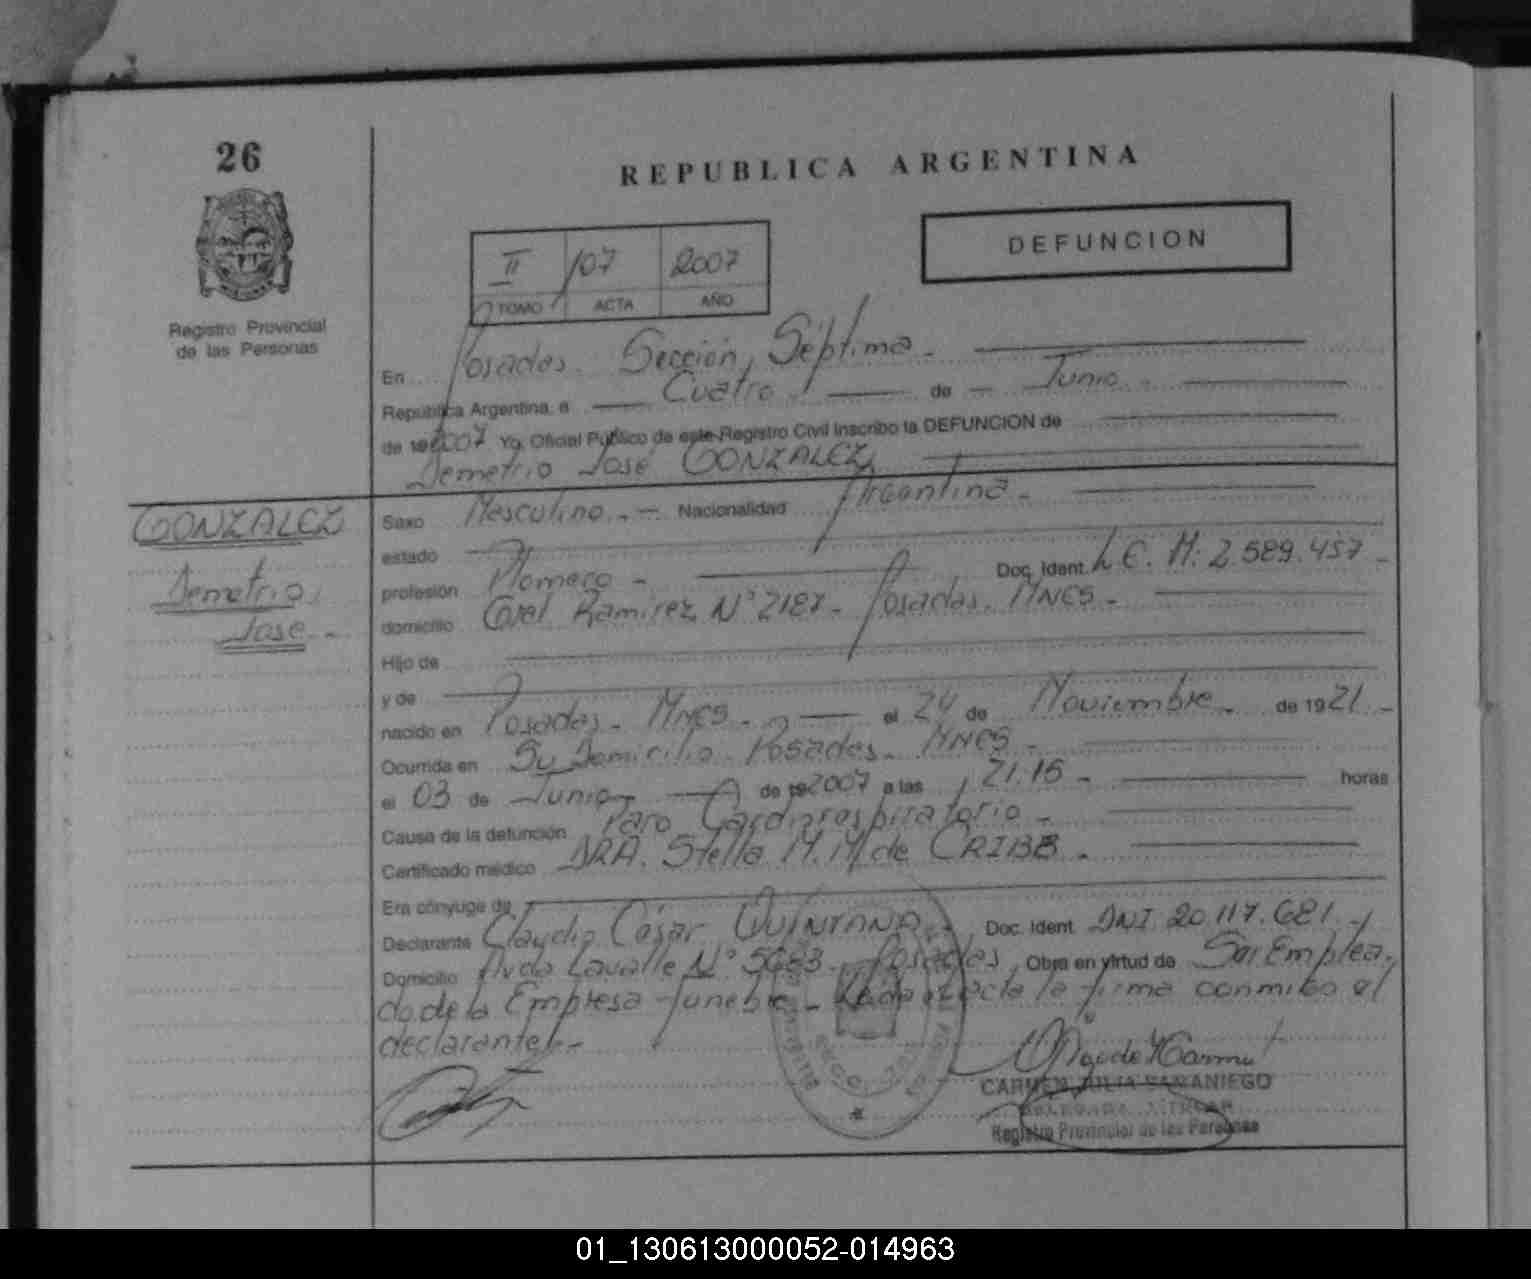 26
REPUBLICA ARGENTINA
DEFUNCION
II 107 2007
TOMO ACTA AÑO
Registro Provincial
de las Personas
En Posadas. Sección Séptima.
República Argentina, a Cuatro de Junio
de 19 2007 Yo, Oficial Público de este Registro Civil inscribo la DEFUNCION de
Demetrio José GONZALEZ
GONZALEZ
Demetrio
José.-
Sexo Masculino.- Nacionalidad Argentina.
estado
profesión Plomero - Doc. Ident. L.E. M: 2.589.457-
domicilio Cnel. Ramirez N° 2187- Posadas. MNES-
Hijo de
y de
nacido en Posadas- MNES- el 24 de Noviembre. de 1921.-
Ocurrida en Su Domicilio. Posades. MNES-
el 03 de Junio de 19 2007 a las 21.15- horas
Causa de la defunción Paro Cardiorespiratorio-
Certificado médico DRA. Stella M. M. de CRIBB.
Era cónyuge de
Declarante Claudio César QUINTANA. Doc. Ident. DNI. 20.117.681.-
Domicilio Avda Lavalle N° 5683. Posadas Obra en virtud de Ser Emplea-
do de la Empresa funebre- Leida el acta la firma conmigo el
declarante.-
CARMEN JULIA SAMANIEGO
Registro Provincial de las Personas
01_130613000052-014963